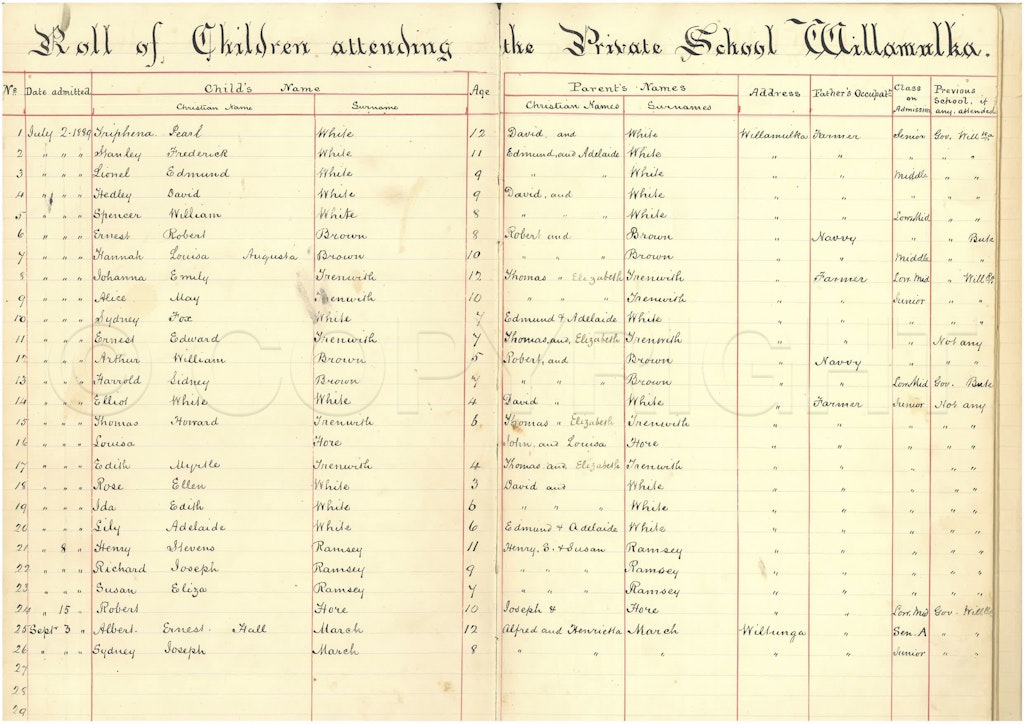 Roll of Children attending the Private School Willamulka.
Nº Date admitted Child's Name Age Parent's Names Address Father's Occupat Class on Admission Previous School, if any, attended
Christian Name Surname Christian Names Surnames
1 July 2-1889 Triphena Pearl White 12 David, and White Willamulka Farmer Senior Gov. Will
2 " " " Stanley Frederick White 11 Edmund, and Adelaide White " " " " "
3 " " " Lionel Edmund White 9 " " White " " Middle " "
4 " " " Hedley David White 9 David, and White " " " " "
5 " " " Spencer William White 8 " " " White " " Low. Mid " "
6 " " " Ernest Robert Brown 8 Robert and Brown " Navvy " " Bute
7 " " " Hannah Louisa Augusta Brown 10 " " Brown " " Middle " "
8 " " " Johanna Emily Trenwith 12 Thomas " Elizabeth Trenwith " Farmer Low. Mid " Will
9 " " " Alice May Trenwith 10 " " " Trenwith " " Junior " "
10 " " " Sydney Fox White 7 Edmund & Adelaide White " " " " "
11 " " " Ernest Edward Trenwith 7 Thomas, and, Elizabeth Trenwith " " " Not any
12 " " " Arthur William Brown 5 Robert, and Brown " Navvy " " "
13 " " " Harrold Sidney Brown 7 " " " Brown " " Low. Mid Gov. Bute
14 " " " Elliot White White 4 David " White " Farmer Junior Not any
15 " " " Thomas Howard Trenwith 6 Thomas " Elizabeth Trenwith " " " " "
16 " " " Louisa Hore John, and Louisa Hore " " " "
17 " " " Edith Myrtle Trenwith 4 Thomas and Elizabeth Trenwith " " " " "
18 " " " Rose Ellen White 3 David and White " " " " "
19 " " " Ida Edith White 6 " " " White " " " " "
20 " " " Lily Adelaide White 6 Edmund & Adelaide White " " " " "
21 " 8 " Henry Stevens Ramsey 11 Henry, E. & Susan Ramsey " " " " "
22 " " " Richard Joseph Ramsey 9 " " " Ramsey " " " " "
23 " " " Susan Eliza Ramsey 7 " " " Ramsey " " " " "
24 " 15 " Robert Hore 10 Joseph & Hore " " Low. Mid Gov. Will
25 Sept 3 " Albert. Ernest. Hall March 12 Alfred and Henrietta March Wiltunga " Sen. A " "
26 " " " Sydney Joseph March 8 " " " " " Junior " "
27
28
29
© COPYRIGHT